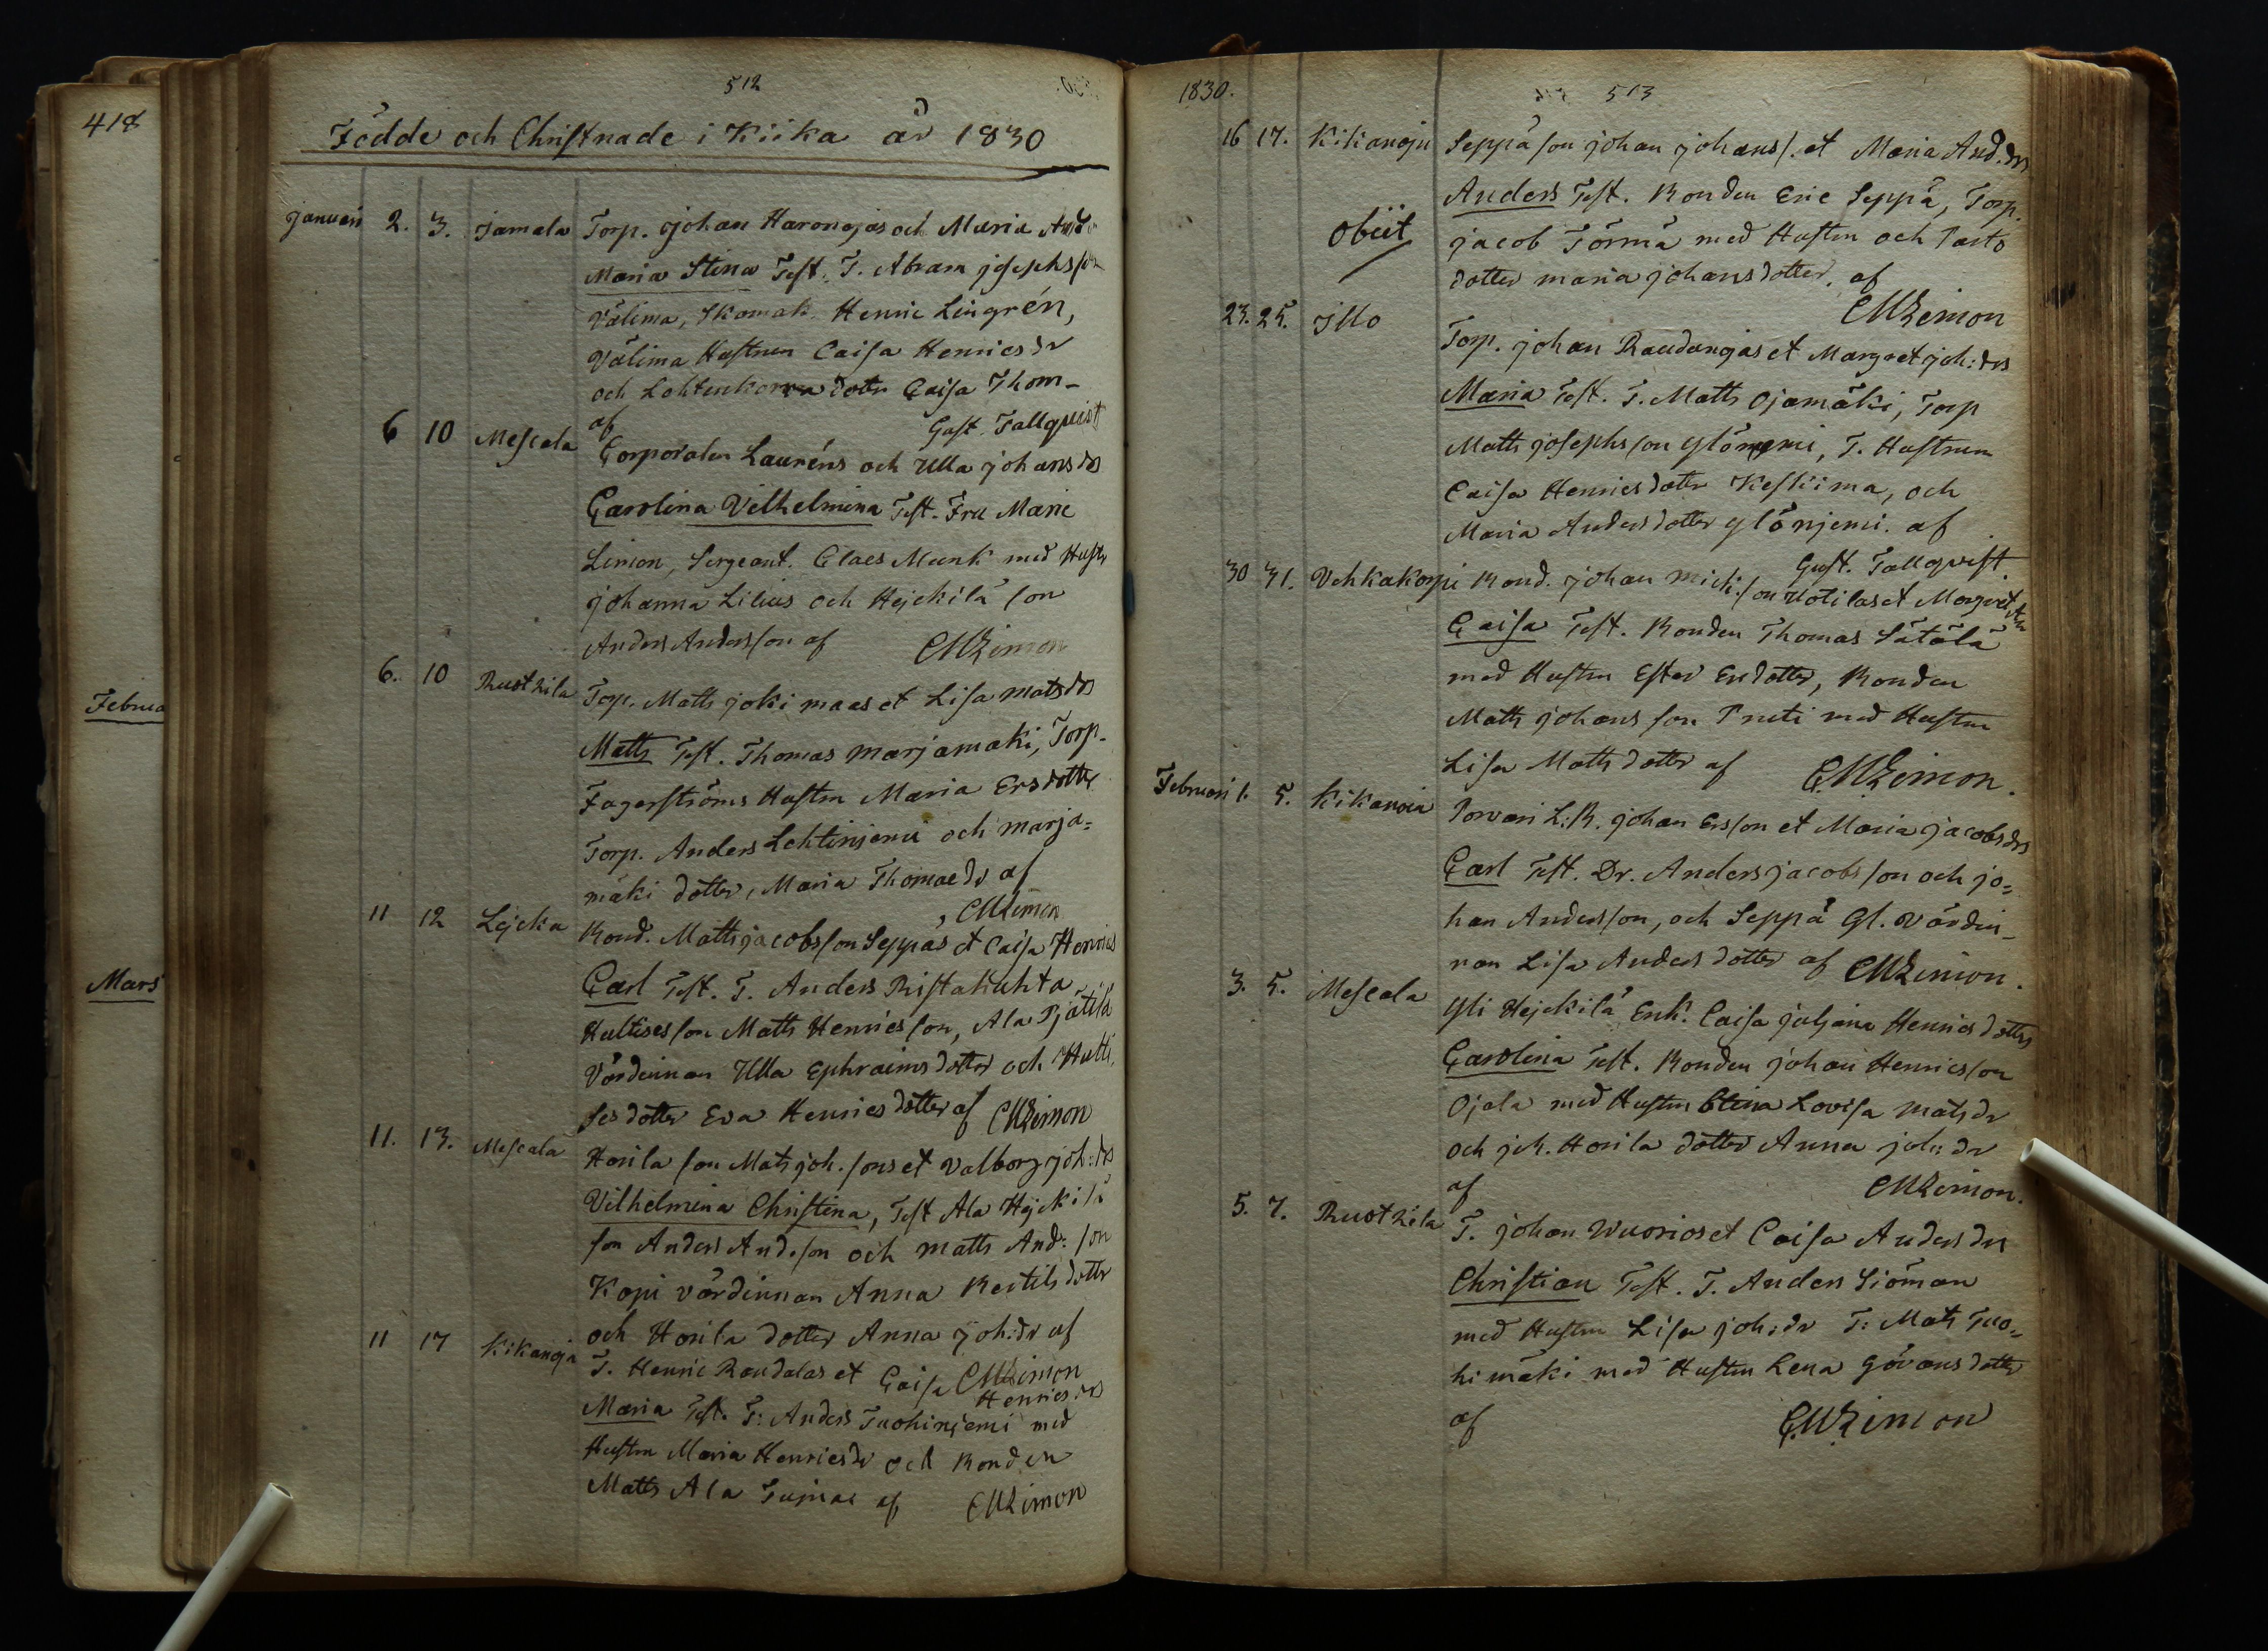 418
Februa
Mars
512
Födde och Christnade i Kiika år 1830
januari 2. 3. Jamala Torp. Johan Haronojas och Maria And
Maria Stina Test. T. Abram josephsson
Välima, Skomak. Henric Lingrén,
Välima Hustrun Caisa Henricsdr
och Lohtenkorva dottr Caisa Thom-
af Gust. Fallqvist
6 10 Mescala Corporalen Lauréns och Ulla johansdrs
Carolina Vilhelmina Test. Fru Marie
Limon, Sergeant. Claes Munk med Hustr
johanna Lilius och Hejckilä son
Anders Andersson af CMLimon
6. 10 Ruotzila Torp. Matts jokimaas et Lisa matsdrs
Matts Test. Thomas marjamaki, Torp.
Fagerströms Hustru Maria Ersdotter
Torp. Anders Lehtinjemi och marja=
mäki dotter, Maria Thomaedr af
CMLimon
11 12 Lejcka Bond. Matts jacobsson Seppäs et Caisa Henrics
Carl Test. T. Anders Ristahuhta
Hultisesson Matts Henricsson, Ala Pjätilä
Värdinnan Ulla Ephraimsdotter och Hulti
ses dotter Eva Henricsdotter af CMLimon
11. 13. Mescala Horila son Mats joh. sons et Valborg joh:drs
Vilhelmina Christina, Test Ala Hejckilä
son Anders And.son och matts And:son
Kopi värdinnan Anna Bertilsdottr
och Horila dotter Anna joh:dr af
CMLimon
11 17 Kikanoja T. Henric Raudalas et Caisa Henricsdrs
Maria Test. T: Anders Tuohinjemi med
Hustru Maria Henricsdr och Bonden
Matts Ala af CMLimon
1830. 513
16 17. Kikanoju Seppä son johan johanss. et Maria And.drs
Anders Test. Bonden Eric Seppä, Torp.
Obiit jacob Törmä med Hustru och Parto
dotter maria johansdotter. af
CMLimon
23. 25. Illo Torp. johan Raudanojas et Margret joh:drs
Maria Test. T. Matts Ojamäki, Torp
Matts josephsson Ylönjemi, T. Hustrun
Caisa Henricsdotter Keskiima, och
Maria Andersdotter Ylönjemi. af
Gust. Fallqvist.
30 31. Vehkakorpi Bond. johan mich:son Uotilas et Margret
Caisa Test. Bonden Thomas Sätälä
med Hustru Ester Ersdotter, Bonden
Matts johansson Pruti med Hustru
Lisa Mattsdotter af CMLimon.
Februari 1. 5. Kikanoia Porvari L:B. johan Ersson et Maria jacobsdrs
Carl Test. Dr. Anders jacobsson och jo=
han Andersson, och Seppä Gl. värdin-
nan Lisa Andersdotter af CMLimon.
3. 5. Mescala Yli Hejckilä Enk. Caisa juljana Henricsdotters
Carolina Test. Bonden johan Henricsson
Ojala med Hustru Stina Lovisa Matsdr
och joh. Horila dotter Anna joh:dr
af CMLimon.
5. 7. Ruotzila T. johan Wuorios et Caisa Andersdrs
Christian Test. T. Anders Siöman
med Hustru Lisa joh:dr T: Mats Tuo=
himäki med Hustru Lena Göransdotter
af CMLimon